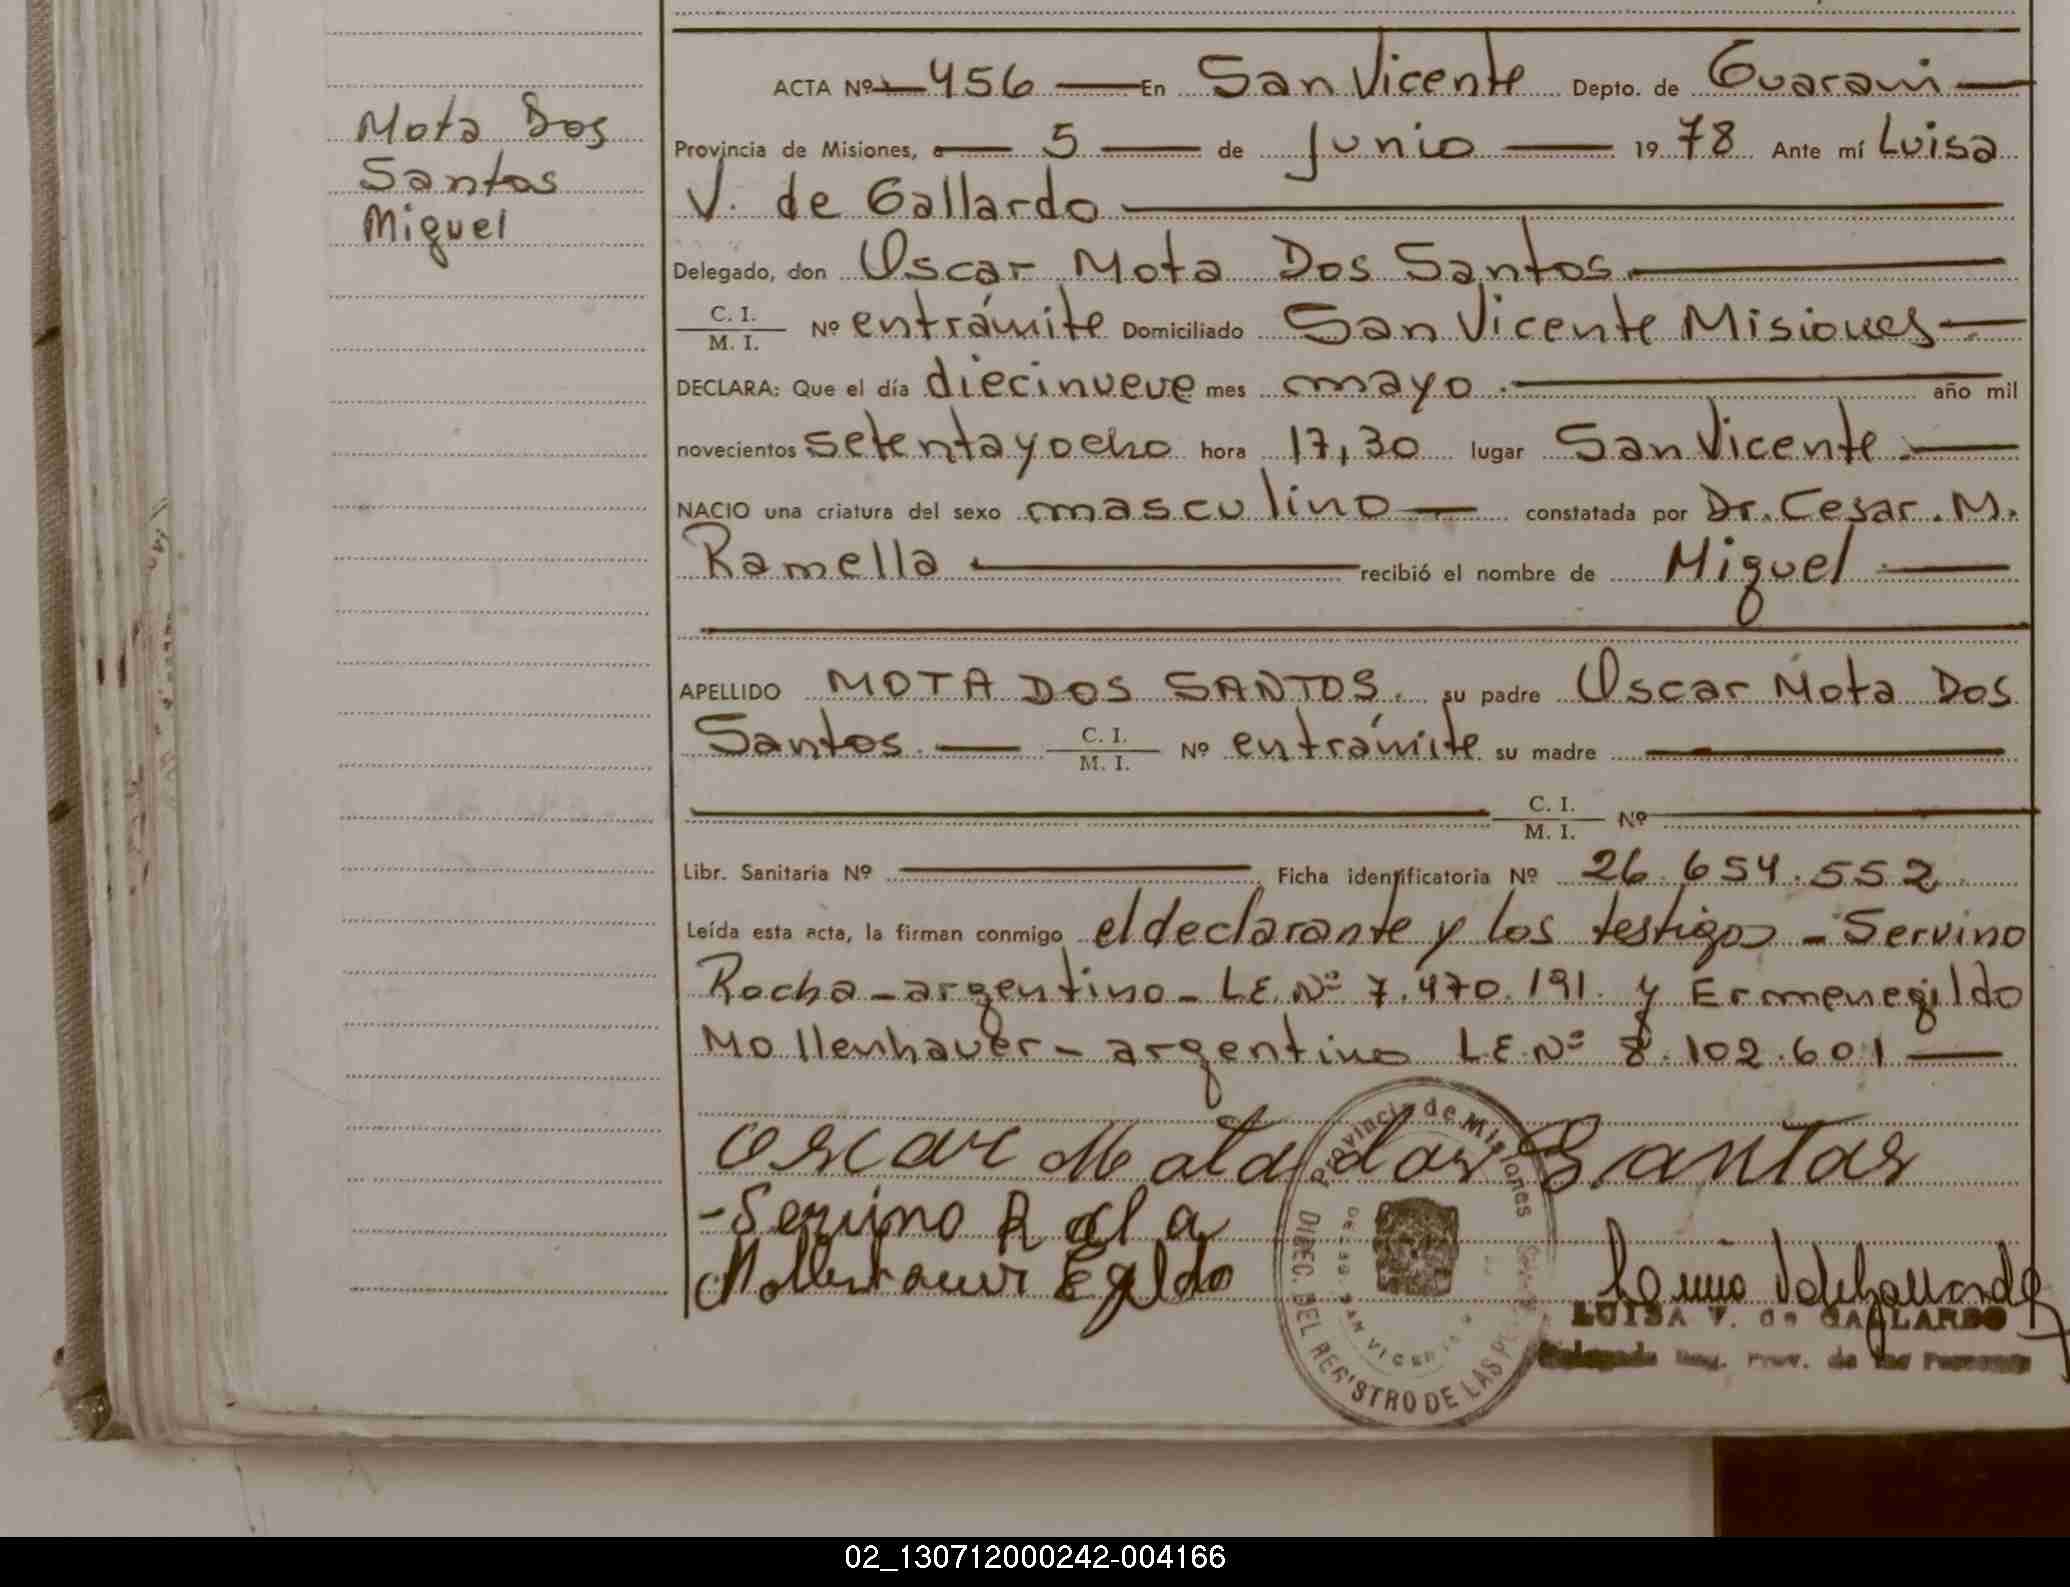 Mota Dos
Santos
Miguel
ACTA Nº 456 En San Vicente Depto. de Guarani
Provincia de Misiones, a 5 de Junio 1978 Ante mí Luisa
V. de Gallardo
Delegado, don Oscar Mota Dos Santos
C. I.
M. I. Nº entrámite Domiciliado San Vicente Misiones
DECLARA: Que el día diecinueve mes mayo año mil
novecientos setentayocho hora 17,30 lugar San Vicente
NACIO una criatura del sexo masculino constatada por Dr. Cesar. M.
Ramella recibió el nombre de Miguel
APELLIDO MOTA DOS SANTOS. su padre Oscar Mota Dos
Santos. C. I. M. I. Nº entrámite su madre
C. I.
M. I. Nº
Libr. Sanitaria Nº Ficha identificatoria Nº 26.654.552
Leída esta acta, la firman conmigo el declarante y los testigos - Servino
Rocha - argentino - LE. Nº 7.470.191. y Ermenegildo
Mollenhauer - argentino LE. Nº 8.102.601
Oscar Mota dos Santos
Provincia de Misiones
DIREC. DEL REGISTRO DE LAS
SAN VICENTE
LUISA V. de GALLARDO
02_130712000242-004166